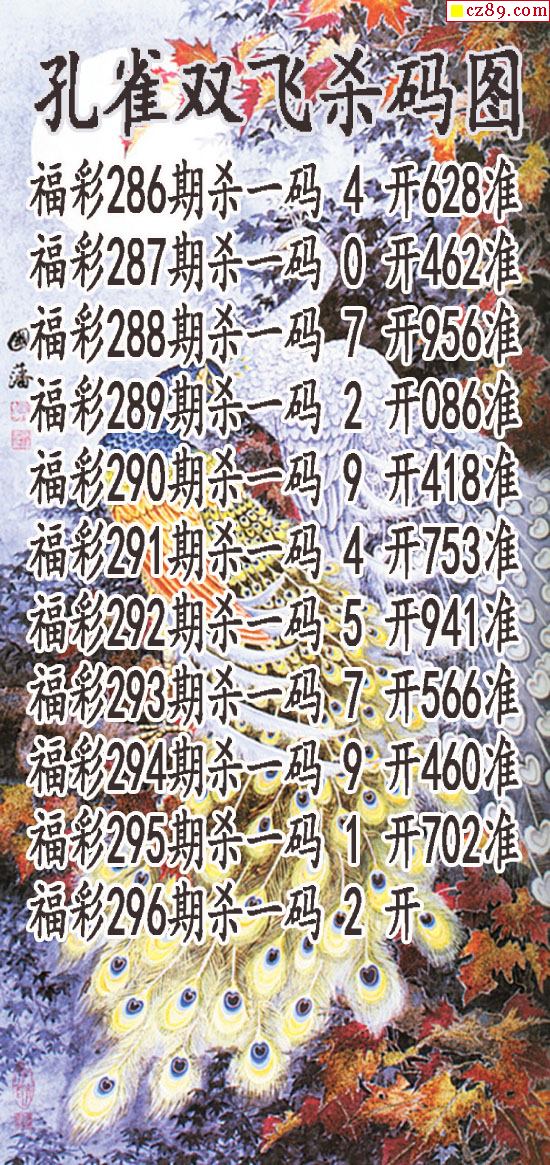 cz89.com
孔雀双飞杀码图
福彩286期杀一码 4 开628准
福彩287期杀一码 0 开462准
福彩288期杀一码 7 开956准
福彩289期杀一码 2 开086准
福彩290期杀一码 9 开418准
福彩291期杀一码 4 开753准
福彩292期杀一码 5 开941准
福彩293期杀一码 7 开566准
福彩294期杀一码 9 开460准
福彩295期杀一码 1 开702准
福彩296期杀一码 2 开